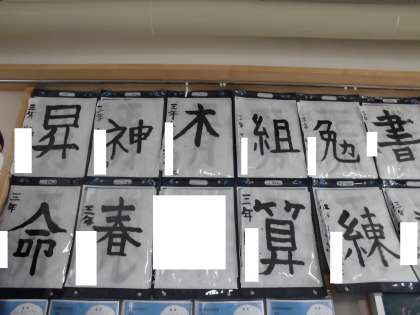 昇
三年
神
三年
木
三年
組
勉
書
命
三年
春
三年
算
三年
練